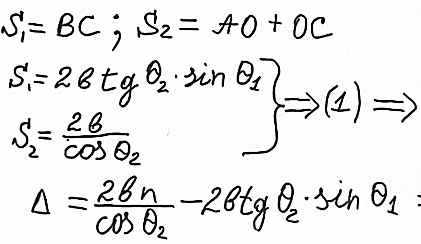 S₁ = BC ; S₂ = AO + OC
S₁ = 2в tg Θ₂ · sin Θ₁
S₂ = 2в / cos Θ₂ } ⇒ (1) ⇒
Δ = 2вn / cos Θ₂ − 2в tg Θ₂ · sin Θ₁ :